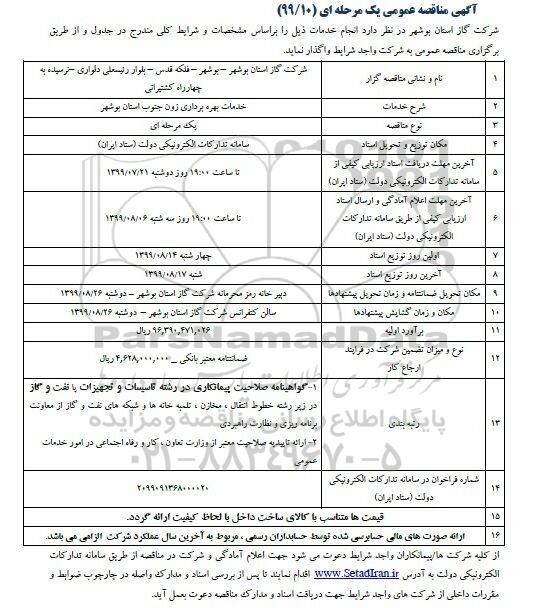 آگهی مناقصه عمومی یک مرحله ای (۹۹/۱۰)
شرکت گاز استان بوشهر در نظر دارد انجام خدمات ذیل را براساس مشخصات و شرایط کلی مندرج در جدول و از طریق
برگزاری مناقصه عمومی به شرکت واجد شرایط واگذار نماید.
۱ نام و نشانی مناقصه گزار شرکت گاز استان بوشهر – بوشهر – فلکه قدس – بلوار رئیسعلی دلواری –نرسیده به
چهارراه کشتیرانی
۲ شرح خدمات خدمات بهره برداری زون جنوب استان بوشهر
۳ نوع مناقصه یک مرحله ای
۴ مکان توزیع و تحویل اسناد سامانه تدارکات الکترونیکی دولت (ستاد ایران)
۵ آخرین مهلت دریافت اسناد ارزیابی کیفی از
سامانه تدارکات الکترونیکی دولت (ستاد ایران) تا ساعت ۱۹:۰۰ روز دوشنبه ۱۳۹۹/۰۷/۲۱
۶ آخرین مهلت اعلام آمادگی و ارسال اسناد
ارزیابی کیفی از طریق سامانه تدارکات
الکترونیکی دولت (ستاد ایران) تا ساعت ۱۹:۰۰ روز سه شنبه ۱۳۹۹/۰۸/۰۶
۷ اولین روز توزیع اسناد چهار شنبه ۱۳۹۹/۰۸/۱۴
۸ آخرین روز توزیع اسناد شنبه ۱۳۹۹/۰۸/۱۷
۹ مکان تحویل ضمانتنامه و زمان تحویل پیشنهادها دبیر خانه رمز محرمانه شرکت گاز استان بوشهر – دوشنبه ۱۳۹۹/۰۸/۲۶
۱۰ مکان و زمان گشایش پیشنهادها سالن کنفرانس شرکت گاز استان بوشهر – دوشنبه ۱۳۹۹/۰۸/۲۶
۱۱ برآورد اولیه ۹۶,۳۹۰,۴۷۱,۰۲۶ ریال
۱۲ نوع و میزان تضمین شرکت در فرایند
ارجاع کار ضمانتنامه معتبر بانکی _ ۴,۶۲۸,۰۰۰,۰۰۰ ریال
۱۳ رتبه بندی ۱-گواهینامه صلاحیت پیمانکاری در رشته تاسیسات و تجهیزات یا نفت و گاز
در زیر رشته خطوط انتقال ، مخازن ، تلمبه خانه ها و شبکه های نفت و گاز از معاونت
برنامه ریزی و نظارت راهبردی
۲-ارائه تاییدیه صلاحیت معتبر از وزارت تعاون ، کار و رفاه اجتماعی در امور خدمات
عمومی
۱۴ شماره فراخوان در سامانه تدارکات الکترونیکی
دولت (ستاد ایران) ۲۰۹۹۰۹۱۳۶۸۰۰۰۰۲۰
۱۵ قیمت ها متناسب با کالای ساخت داخل با لحاظ کیفیت ارائه گردد.
۱۶ ارائه صورت های مالی حسابرسی شده توسط حسابداران رسمی ، مربوط به آخرین سال عملکرد شرکت الزامی می باشد.
از کلیه شرکت ها/پیمانکاران واجد شرایط دعوت می شود جهت اعلام آمادگی و شرکت در مناقصه از طریق سامانه تدارکات
الکترونیکی دولت به آدرس www.SetadIran.ir اقدام نمایند تا پس از بررسی اسناد و مدارک واصله در چارچوب ضوابط و
مقررات داخلی از شرکت های واجد شرایط جهت دریافت اسناد و مدارک مناقصه دعوت بعمل آید.
ParsNamadData
پایگاه اطلاع رسانی مناقصه و مزایده
۰۲۱-۸۸۳۴۹۶۷۰-۵